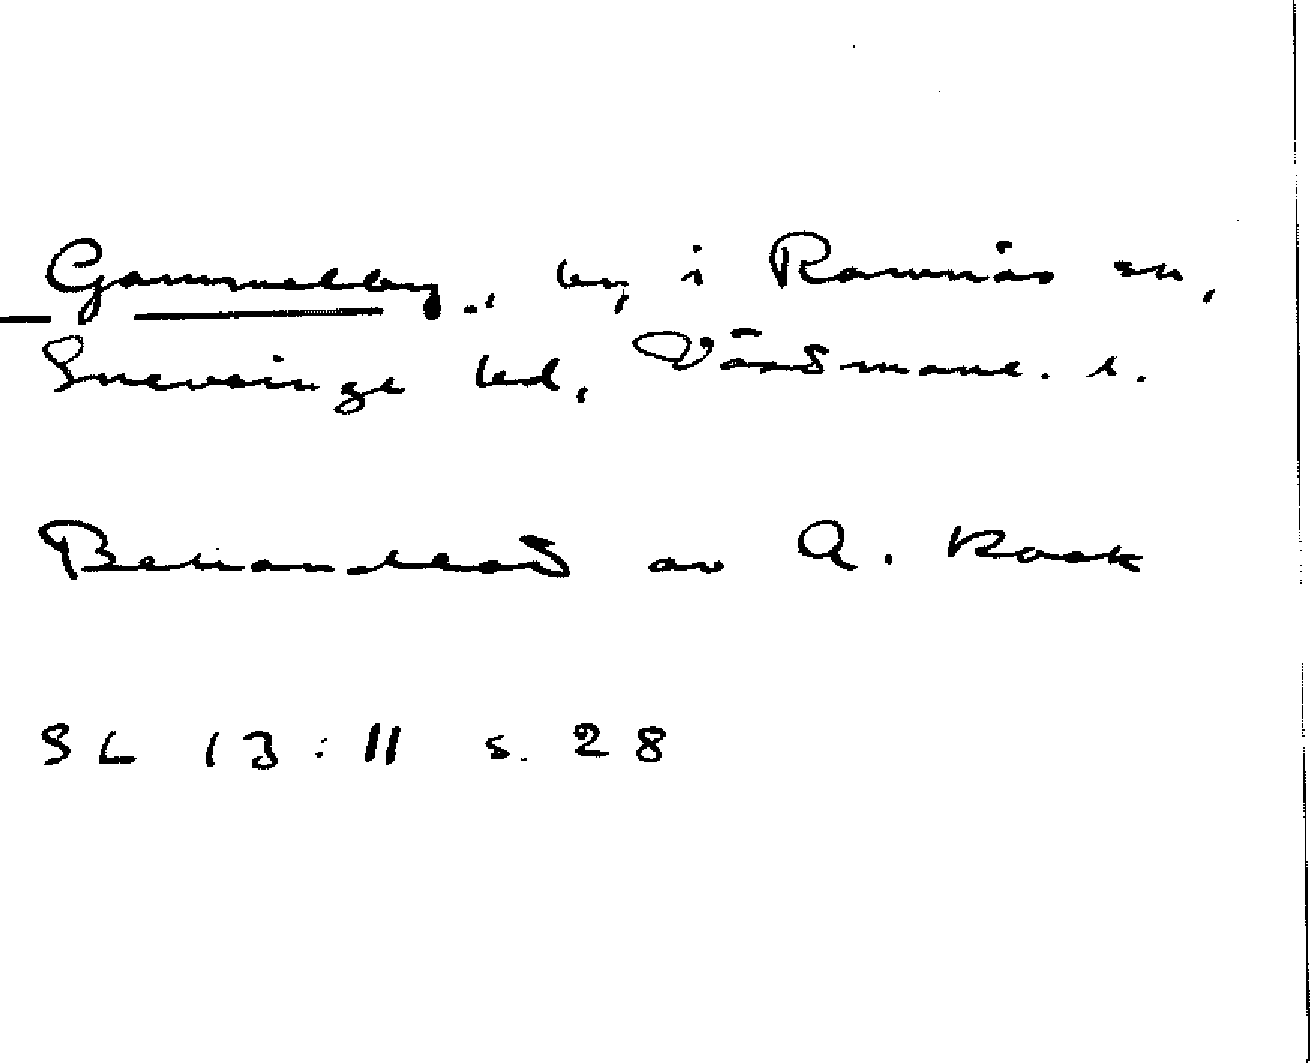 Gammelby, by i Ramnäs sn,
Snevringe hd, Västmanl. l.
Behandlad av A. Kock
SL 13:11 s. 28